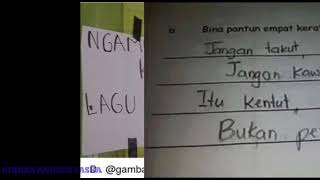 NGAM
LAGU
D. @gamba
a Bina pantun empat kera
Jangan takut,
Jangan kaw
Itu kentut,
Bukan pe